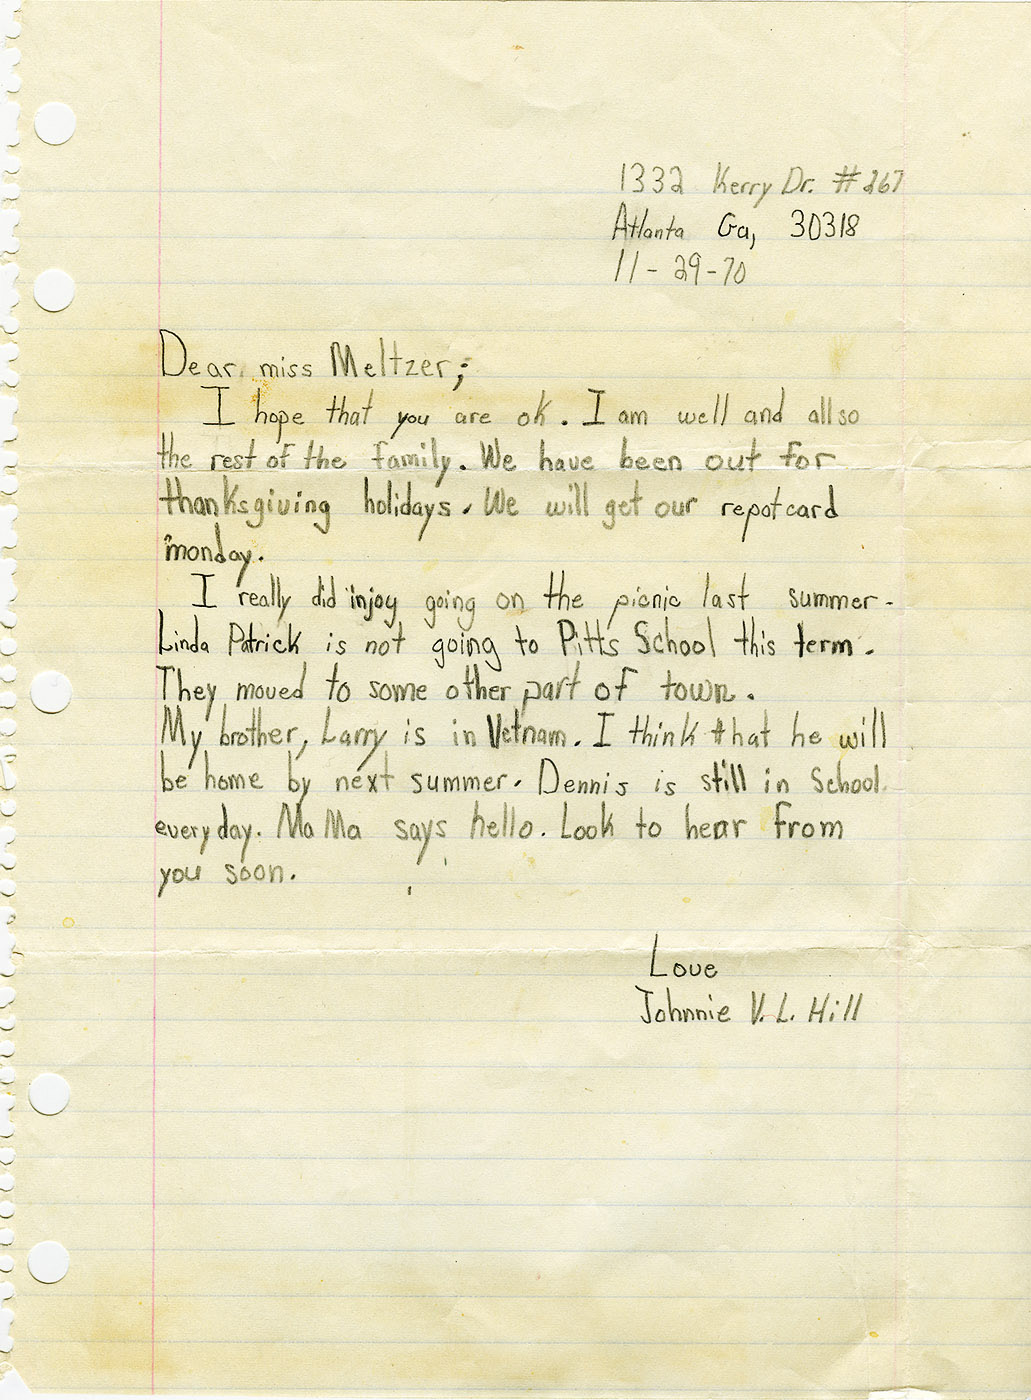 1332 Kerry Dr. #267
Atlanta Ga, 30318
11-29-70
Dear miss Meltzer;
I hope that you are ok. I am well and allso
the rest of the family. We have been out for
thanksgiving holidays. We will get our repotcard
monday.
I really did injoy going on the picnic last summer.
Linda Patrick is not going to Pitts School this term.
They moved to some other part of town.
My brother, Larry is in Vetnam. I think that he will
be home by next summer. Dennis is still in School.
every day. Ma Ma says hello. Look to hear from
you soon.
Love
Johnnie V. L. Hill